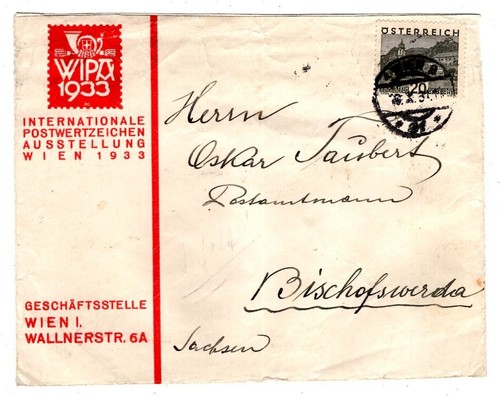 WIPA
1933
INTERNATIONALE
POSTWERTZEICHEN
AUSSTELLUNG
WIEN 1933
ÖSTERREICH
20
Herrn
Oskar Taubert
Postamtmann
Bischofswerda
Sachsen
GESCHÄFTSSTELLE
WIEN I,
WALLNERSTR. 6A